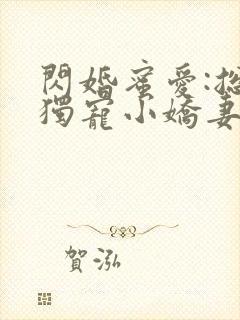 閃婚蜜愛:總
獨寵小嬌妻
賀泓